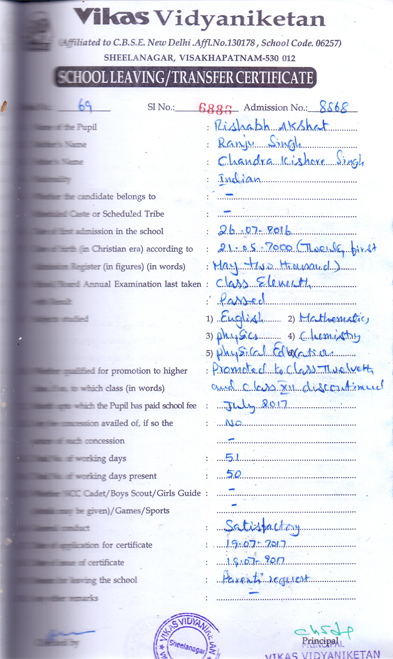 Vikas Vidyaniketan
(Affiliated to C.B.S.E. New Delhi .Affl.No.130178 , School Code. 06257)
SHEELANAGAR, VISAKHAPATNAM-530 012
SCHOOL LEAVING/TRANSFER CERTIFICATE
69 Sl No.: 6885 Admission No.: 8868
Name of the Pupil : Rishabh Akshat
Name : Ranju Singh
Name : Chandra Kishore Singh
: Indian
the candidate belongs to : –
Caste or Scheduled Tribe : –
first admission in the school : 26-07-2016
(in Christian era) according to : 21-05-2000 (Twenty first
Register (in figures) (in words) : May two thousand)
Board Annual Examination last taken : Class Eleventh
: Passed
studied 1) English 2) Mathematics
3) Physics 4) Chemistry
5) Physical Education
qualified for promotion to higher : Promoted to Class Twelveth
to which class (in words) and class XII discontinued
which the Pupil has paid school fee : July 2017
concession availed of, if so the : No
such concession –
of working days : 51
of working days present : 50
NCC Cadet/Boys Scout/Girls Guide : –
be given)/Games/Sports –
conduct : Satisfactory
application for certificate : 19-07-2017
of certificate : 19-07-2017
for leaving the school : Parents' request
remarks : –
VIKAS VIDYANIKETAN
Sheelanagar
Principal
PRINCIPAL
VIKAS VIDYANIKETAN